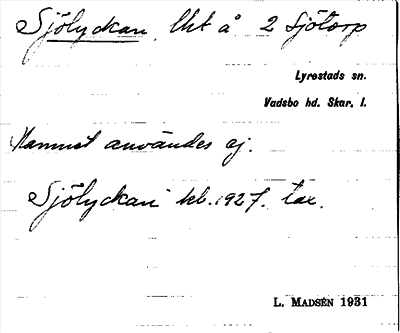 Sjölyckan, lht å 2 Sjötorp
Lyrestads sn.
Vadsbo hd. Skar. l.
Namnet användes ej.
"Sjölyckan" kb. 1927. tax.
L. MADSÉN 1931